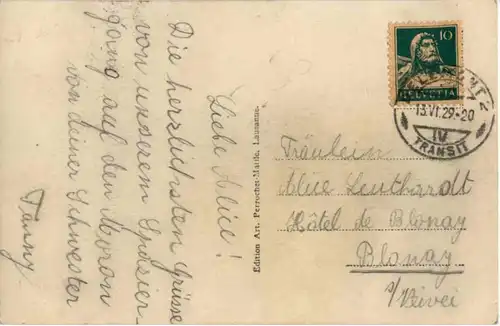 Liebe Alice!
Die herzlichsten Grüsse
von unserem Spazier-
gang auf den Moron
von deiner Schwester
Fanny.
Edition Art. Perrochet-Matile, Lausanne.
10
HELVETIA
13.VI.29-20
IV
TRANSIT
Fräulein
Alice Leuthardt
Hôtel de Blonay
Blonay
s/Vevei